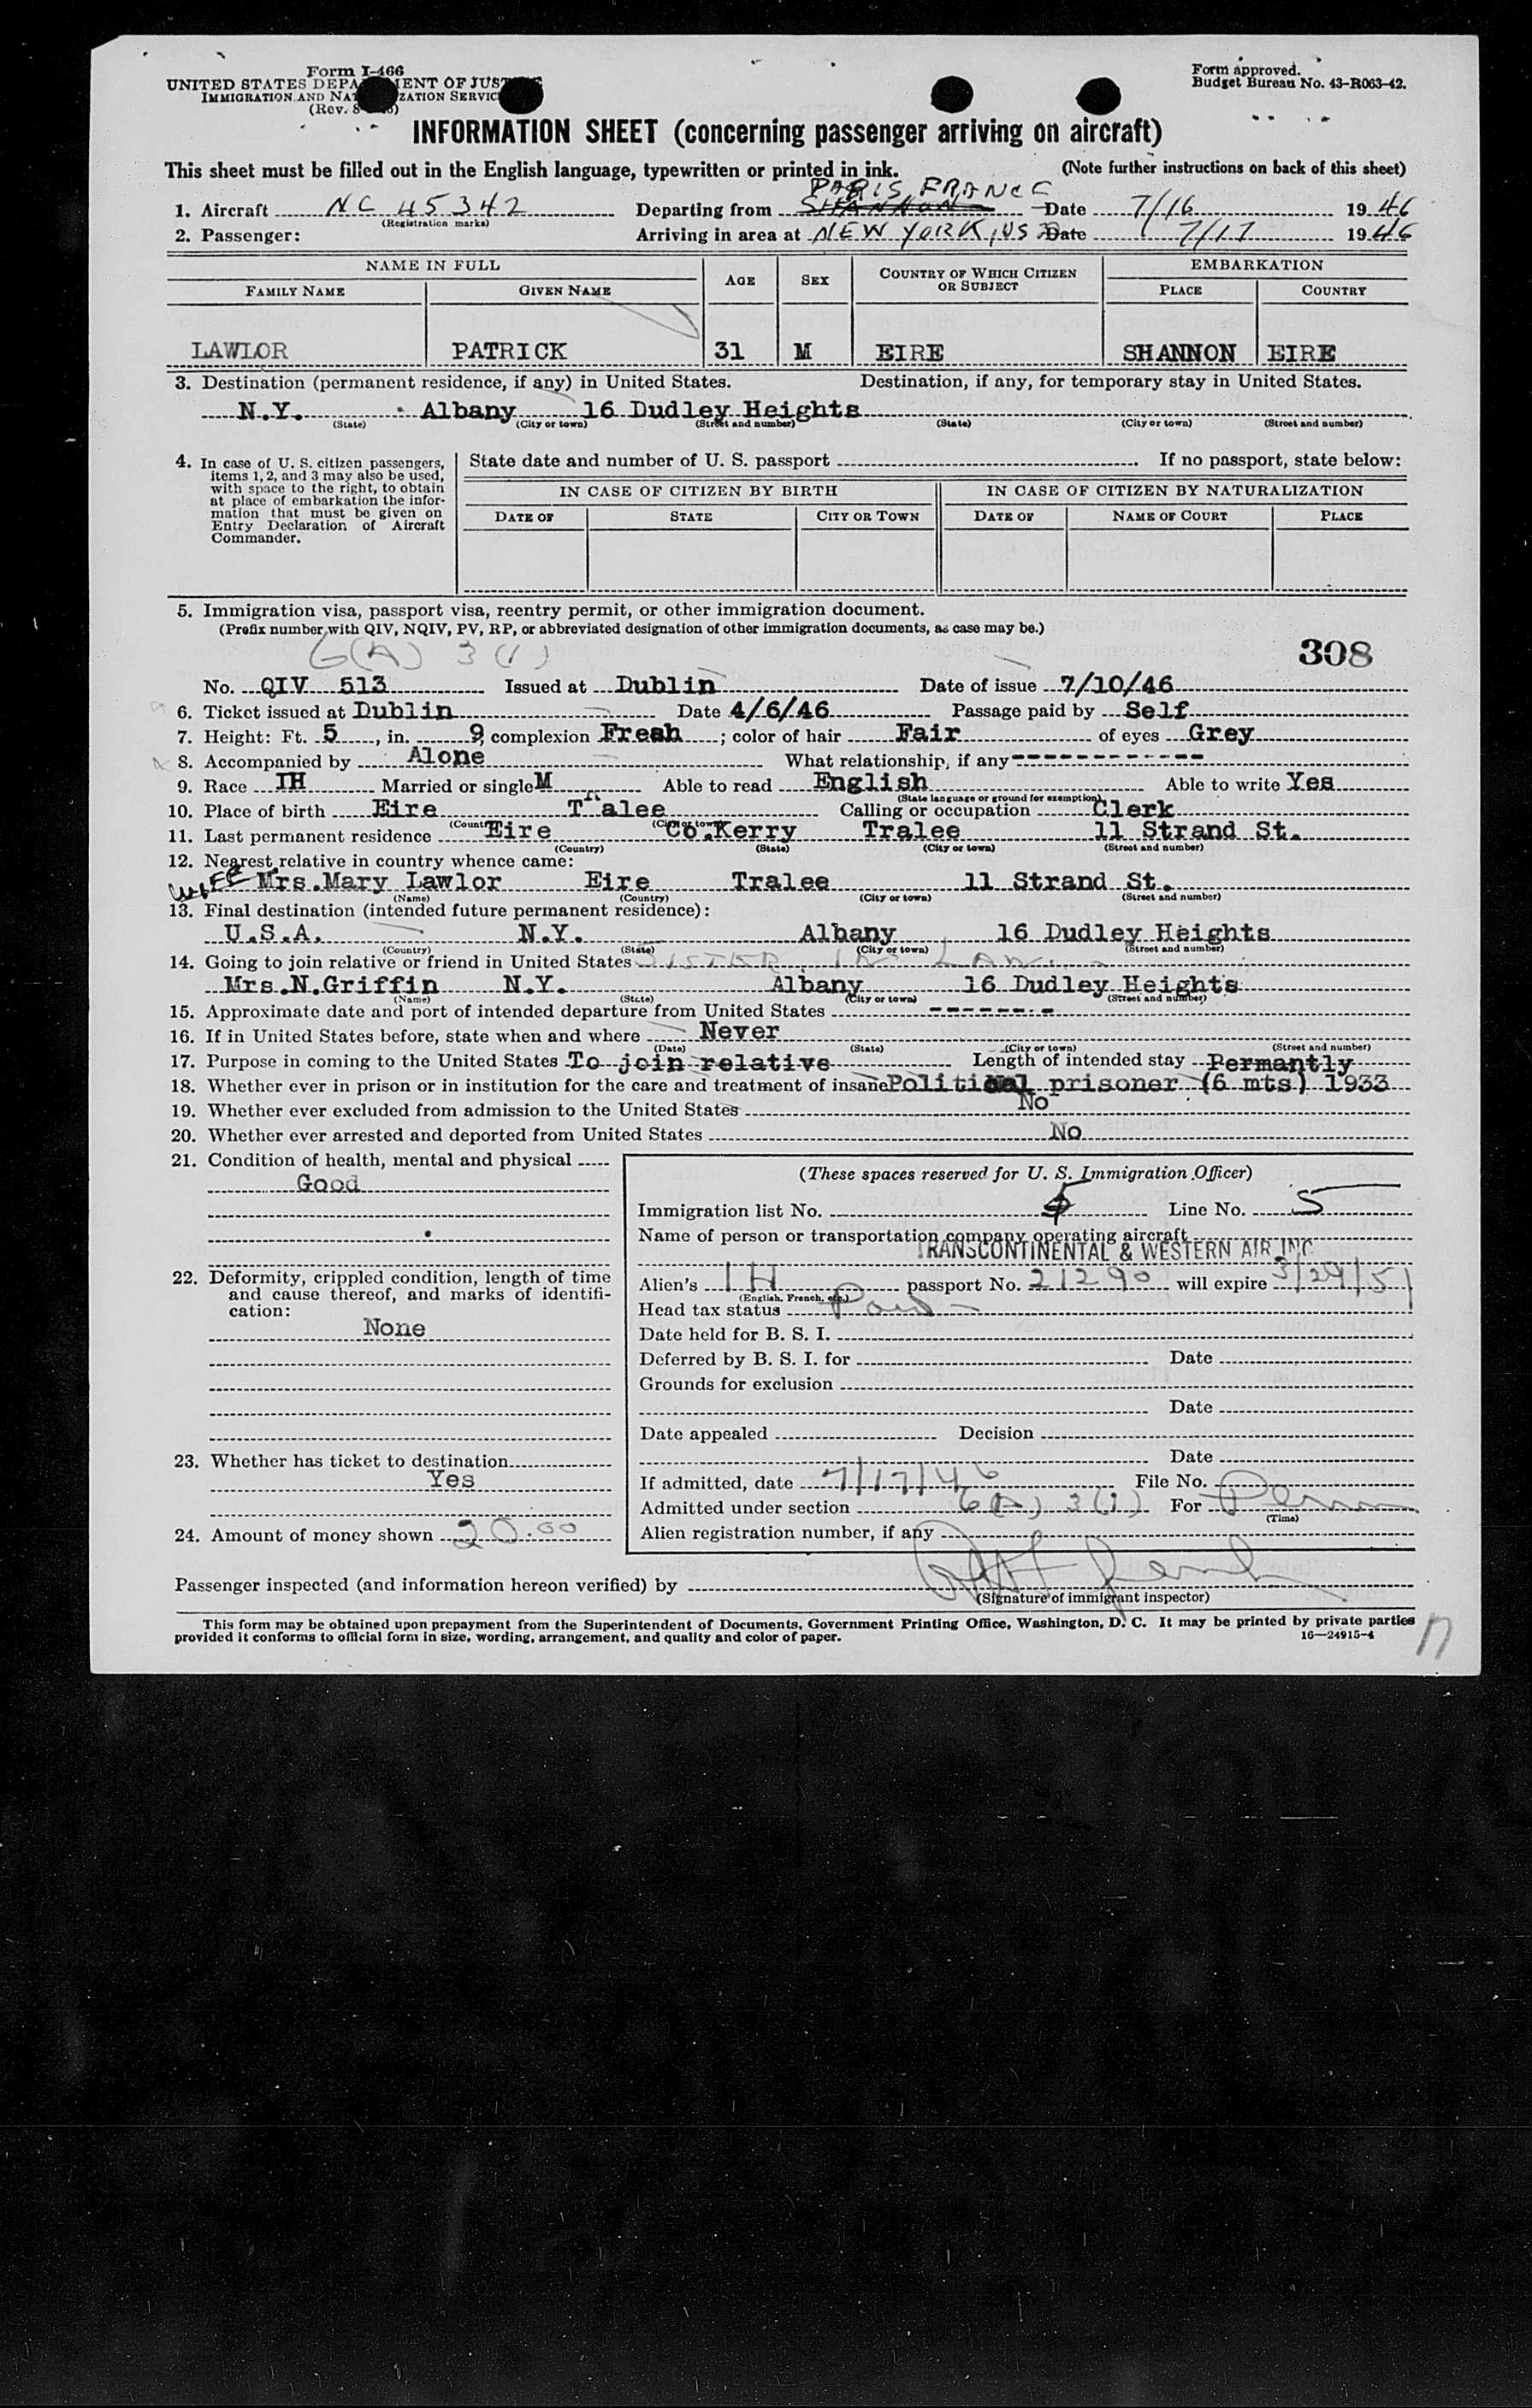 Form I-466
UNITED STATES DEPARTMENT OF JUSTICE
IMMIGRATION AND NATURALIZATION SERVICE
(Rev. 8
Form approved.
Budget Bureau No. 43-R063-42.
INFORMATION SHEET (concerning passenger arriving on aircraft)
This sheet must be filled out in the English language, typewritten or printed in ink. (Note further instructions on back of this sheet)
PARIS, FRANCE
1. Aircraft NC 45342 Departing from SHANNON Date 7/16 1946
(Registration marks)
2. Passenger: Arriving in area at NEW YORK, US Date 7/17 1946
NAME IN FULL AGE SEX COUNTRY OF WHICH CITIZEN OR SUBJECT EMBARKATION
FAMILY NAME GIVEN NAME PLACE COUNTRY
LAWLOR PATRICK 31 M EIRE SHANNON EIRE
3. Destination (permanent residence, if any) in United States. Destination, if any, for temporary stay in United States.
N.Y. Albany 16 Dudley Heights
(State) (City or town) (Street and number) (State) (City or town) (Street and number)
4. In case of U. S. citizen passengers, items 1, 2, and 3 may also be used, with space to the right, to obtain at place of embarkation the information that must be given on Entry Declaration of Aircraft Commander.
State date and number of U. S. passport . If no passport, state below:
IN CASE OF CITIZEN BY BIRTH IN CASE OF CITIZEN BY NATURALIZATION
DATE OF STATE CITY OR TOWN DATE OF NAME OF COURT PLACE
5. Immigration visa, passport visa, reentry permit, or other immigration document.
(Prefix number with QIV, NQIV, PV, RP, or abbreviated designation of other immigration documents, as case may be.)
6(A) 3(1) 308
No. QIV 513 Issued at Dublin Date of issue 7/10/46
6. Ticket issued at Dublin Date 4/6/46 Passage paid by Self
7. Height: Ft. 5, in. 9, complexion Fresh; color of hair Fair of eyes Grey
8. Accompanied by Alone What relationship, if any ------------
9. Race IH Married or single M Able to read English Able to write Yes
(State language or ground for exemption)
10. Place of birth Eire Tralee Calling or occupation Clerk
(Country) (City or town)
11. Last permanent residence Eire Co.Kerry Tralee 11 Strand St.
(Country) (State) (City or town) (Street and number)
12. Nearest relative in country whence came:
WIFE Mrs.Mary Lawlor Eire Tralee 11 Strand St.
(Name) (Country) (City or town) (Street and number)
13. Final destination (intended future permanent residence):
U.S.A. N.Y. Albany 16 Dudley Heights
(Country) (State) (City or town) (Street and number)
14. Going to join relative or friend in United States SISTER IN LAW
Mrs.N.Griffin N.Y. Albany 16 Dudley Heights
(Name) (State) (City or town) (Street and number)
15. Approximate date and port of intended departure from United States --------
16. If in United States before, state when and where Never
(Date) (State) (City or town) (Street and number)
17. Purpose in coming to the United States To join relative Length of intended stay Permantly
18. Whether ever in prison or in institution for the care and treatment of insane Political prisoner (6 mts) 1933
19. Whether ever excluded from admission to the United States No
20. Whether ever arrested and deported from United States No
21. Condition of health, mental and physical
Good
22. Deformity, crippled condition, length of time and cause thereof, and marks of identification:
None
23. Whether has ticket to destination
Yes
24. Amount of money shown 20.00
(These spaces reserved for U. S. Immigration Officer)
Immigration list No. Line No. 5
Name of person or transportation company operating aircraft
TRANSCONTINENTAL & WESTERN AIR INC
Alien's IH passport No. 21290 will expire 3/29/51
(English, French, etc.)
Head tax status Paid
Date held for B. S. I.
Deferred by B. S. I. for Date
Grounds for exclusion
Date
Date appealed Decision
Date
If admitted, date 7/17/46 File No.
Admitted under section 6(A) 3(1) For Perm
(Time)
Alien registration number, if any
Passenger inspected (and information hereon verified) by
(Signature of immigrant inspector)
This form may be obtained upon prepayment from the Superintendent of Documents, Government Printing Office, Washington, D. C. It may be printed by private parties
provided it conforms to official form in size, wording, arrangement, and quality and color of paper. 16—24915-4